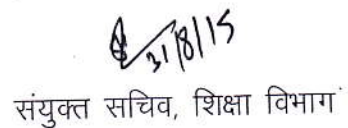 31/8/15
संयुक्त सचिव, शिक्षा विभाग